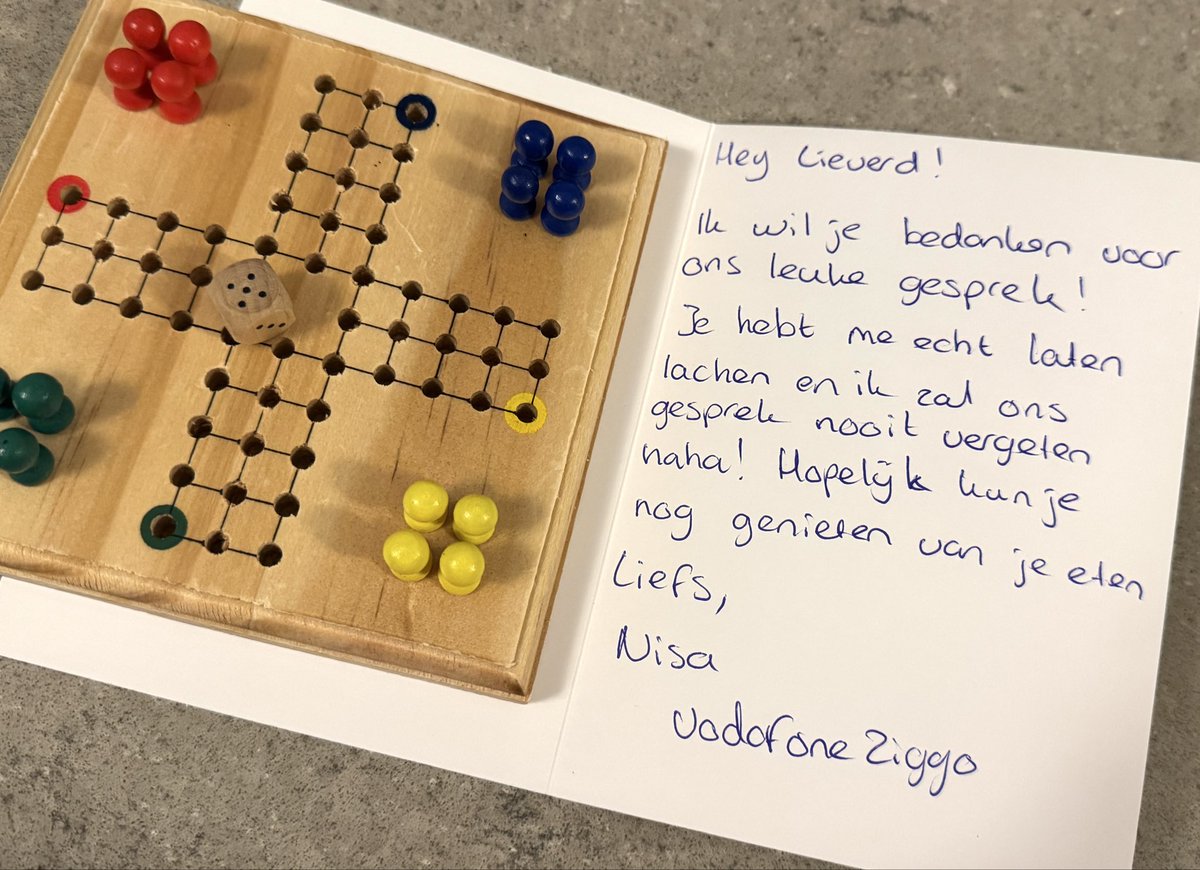 Hey Lieverd!
Ik wil je bedanken voor
ons leuke gesprek!
Je hebt me echt laten
lachen en ik zal ons
gesprek nooit vergeten
haha! Hopelijk kun je
nog genieten van je eten
Liefs,
Nisa
VodafoneZiggo